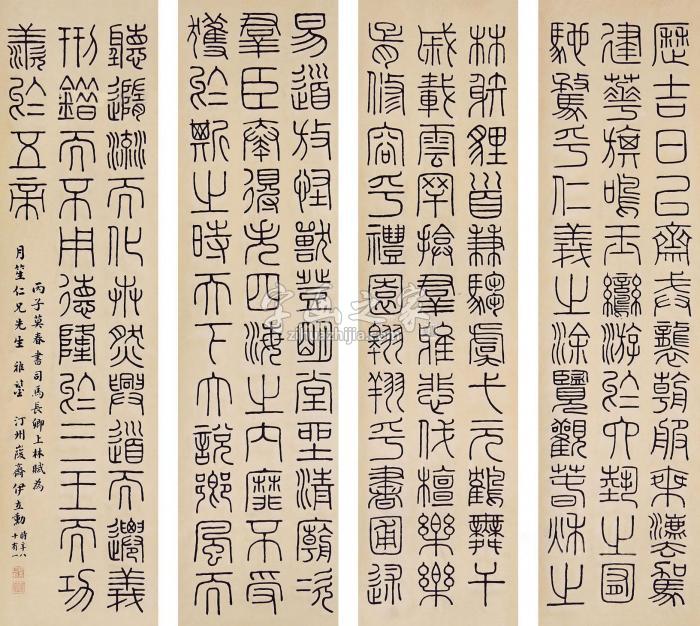 歷吉日㠯齋戒襲朝服乘灋駕
建華旗鳴玉鸞游於六埶之囿
馳騖乎仁義之涂覽觀萅秌之
林躲貍首兼騶虞弋元鶴舞干
戚載雲罕揜羣雅悲伐檀樂樂
胥修容乎禮園翱翔乎書圃述
易道放怪獸登朙堂坐清廟次
羣臣奏得失四海之內靡不受
獲於斯之時天下大說鄉風而
聽隨流而化芔然興道而遷義
刑錯而不用德隆於三王而功
羨於五帝
丙子莫春書司馬長卿上林賦為
月笙仁兄先生 雅鑒 汀州峻齋伊立勳時年八十有一
字画之家
zihuazhijia.com